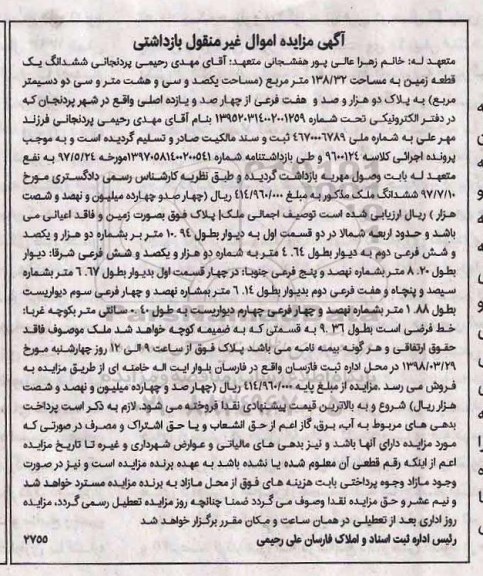 آگهی مزایده اموال غیر منقول بازداشتی
متعهد له: خانم زهرا عالی پور هفشجانی متعهد: آقای مهدی رحیمی پردنجانی ششدانگ یک
قطعه زمین به مساحت ۱۳۸/۳۲ متر مربع (مساحت یکصد و سی و هشت متر و سی دو دسیمتر
مربع) به پلاک دو هزار و صد و هفت فرعی از چهار صد و یازده اصلی واقع در شهر پردنجان که
در دفتر الکترونیکی تحت شماره ۱۳۹۵۲۰۳۱۴۰۰۲۰۰۱۲۵۹ بنام آقای مهدی رحیمی پردنجانی فرزند
مهر علی به شماره ملی ۴۶۷۰۰۰۶۷۸۹ ثبت و سند مالکیت صادر و تسلیم گردیده است و به موجب
پرونده اجرائی کلاسه ۹۶۰۰۱۲۴ و طی بازداشتنامه شماره ۱۳۹۷۰۵۸۱۴۰۰۲۰۰۵۴۱مورخه ۹۷/۵/۲۴ به نفع
متعهد له بابت وصول مهریه بازداشت گردیده و طبق نظریه کارشناس رسمی دادگستری مورخ
۹۷/۷/۱۰ ششدانگ ملک مذکور به مبلغ ۴۱۴/۹۶۰/۰۰۰ ریال (چهار صد و چهارده میلیون و نهصد و شصت
هزار ) ریال ارزیابی شده است توصیف اجمالی ملک: پلاک فوق بصورت زمین و فاقد اعیانی می
باشد و حدود اربعه شمالا در دو قسمت اول به دیوار بطول ۱۰.۹۴ متر بر بشماره دو هزار و یکصد
و شش فرعی دوم به دیوار بطول ۴.۶۴ متر به شماره دو هزار و یکصد و شش فرعی شرقا: دیوار
بطول ۸.۲۰ متر بشماره نهصد و پنج فرعی جنوبا: در چهار قسمت اول بدیوار بطول ۶.۶۷ متر بشماره
سیصد و پنجاه و هفت فرعی دوم بدیوار بطول ۶.۱۴ متر بمشاره نهصد و چهار فرعی سوم دیواریست
بطول ۱.۸۸ متر بشماره نهصد و چهار فرعی چهارم دیواریست به طول ۴۰ سانتی متر بکوچه غربا:
خط فرضی است بطول ۹.۳۶ به قسمتی که به ضمیمه کوچه خواهد شد ملک موصوف فاقد
حقوق ارتفاقی و هر گونه بیمه نامه می باشد پلاک فوق از ساعت ۹ الی ۱۲ روز چهارشنبه مورخ
۱۳۹۸/۰۳/۲۹ در محل اداره ثبت فارسان واقع در فارسان بلوار ایت اله خامنه ای از طریق مزایده به
فروش می رسد .مزایده از مبلغ پایه ۴۱۴/۹۶۰/۰۰۰ ریال (چهار صد و چهارده میلیون و نهصد و شصت
هزار ریال) شروع و به بالاترین قیمت پیشنهادی نقدا فروخته می شود. لازم به ذکر است پرداخت
بدهی های مربوط به آب، برق، گاز اعم از حق انشعاب و یا حق اشتراک و مصرف در صورتی که
مورد مزایده دارای آنها باشد و نیز بدهی های مالیاتی و عوارض شهرداری و غیره تا تاریخ مزایده
اعم از اینکه رقم قطعی آن معلوم شده یا نشده باشد به عهده برنده مزایده است و نیز در صورت
وجود مازاد وجوه پرداختی بابت هزینه های فوق از محل مازاد به برنده مزایده مسترد خواهد شد
و نیم عشر و حق مزایده نقدا وصول می گردد ضمنا چنانچه روز مزایده تعطیل رسمی گردد، مزایده
روز اداری بعد از تعطیلی در همان ساعت و مکان مقرر برگزار خواهد شد
رئیس اداره ثبت اسناد و املاک فارسان علی رحیمی ۲۷۵۵